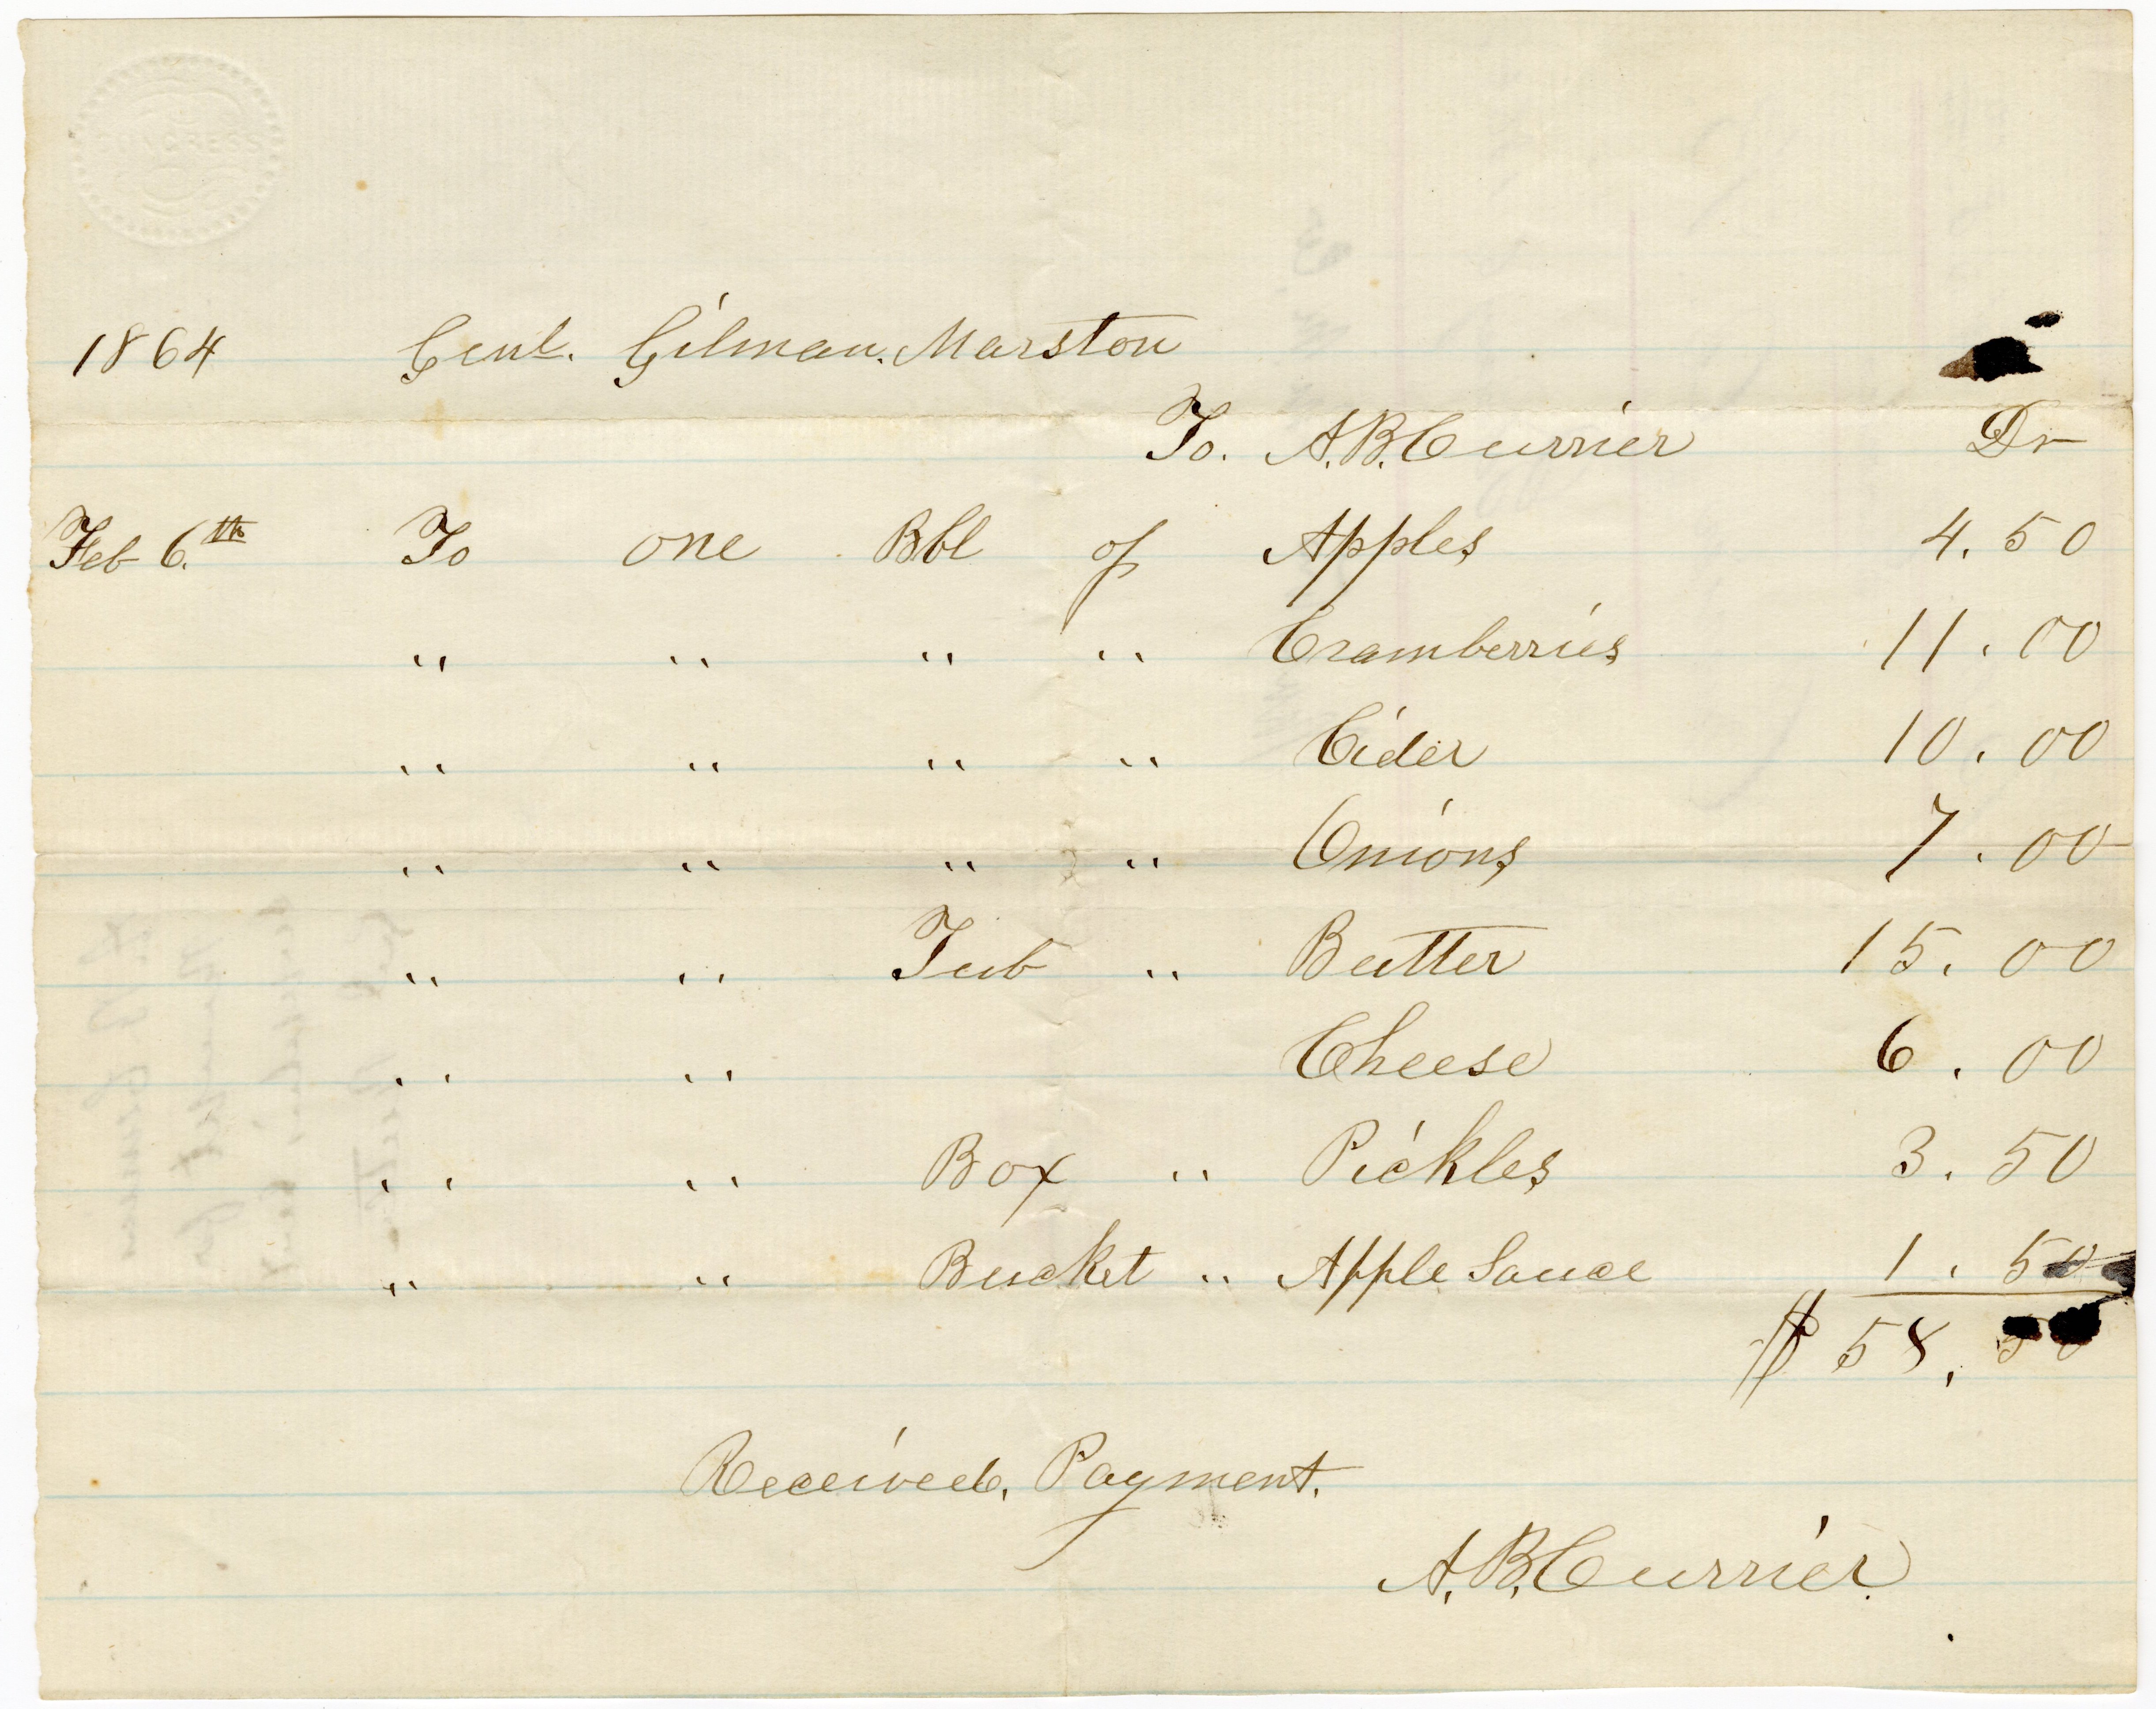 CONGRESS
1864 Genl. Gilman. Marston
To. A.B. Currier Dr
Feb 6.th To one Bbl of Apples 4.50
" " " " Cramberries 11.00
" " " " Cider 10.00
" " " " Onions 7.00
" " Tub " Butter 15.00
" " Cheese 6.00
" " Box " Pickles 3.50
" " Bucket " Apple Sauce 1.50
$58.50
Received, Payment.
A.B. Currier.